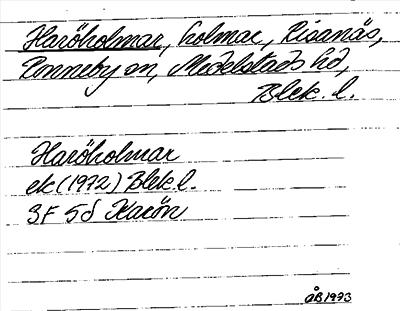 Haröholmar, holmar, Risanäs,
Ronneby sn, Medelstads hd,
Blek. l.
Haröholmar
ek (1972) Blek. l.
3F 5d Karön
ÅB 1973